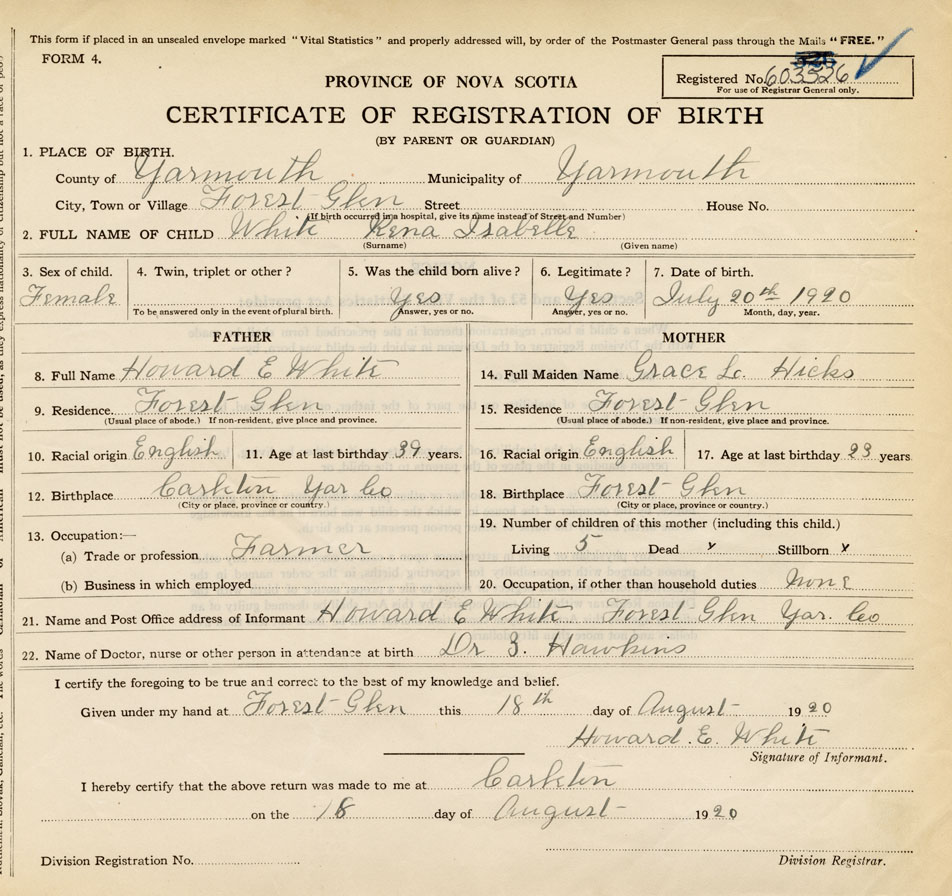 This form if placed in an unsealed envelope marked "Vital Statistics" and properly addressed will, by order of the Postmaster General pass through the Mails "FREE."
FORM 4.
Registered No. 603526
For use of Registrar General only.
PROVINCE OF NOVA SCOTIA
CERTIFICATE OF REGISTRATION OF BIRTH
(BY PARENT OR GUARDIAN)
1. PLACE OF BIRTH.
County of Yarmouth Municipality of Yarmouth
City, Town or Village Forest Glen Street House No.
(If birth occurred in a hospital, give its name instead of Street and Number)
2. FULL NAME OF CHILD White Rena Isabelle
(Surname) (Given name)
3. Sex of child. 4. Twin, triplet or other? 5. Was the child born alive? 6. Legitimate? 7. Date of birth.
Female Yes Yes July 20th 1920
To be answered only in the event of plural birth. Answer, yes or no. Answer, yes or no. Month, day, year.
FATHER MOTHER
8. Full Name Howard E White 14. Full Maiden Name Grace L. Hicks
9. Residence. Forest Glen 15. Residence Forest Glen
(Usual place of abode.) If non-resident, give place and province. (Usual place of abode.) If non-resident, give place and province.
10. Racial origin English 11. Age at last birthday 39 years. 16. Racial origin English 17. Age at last birthday 23 years
12. Birthplace Carleton Yar Co 18. Birthplace Forest Glen
(City or place, province or country.) (City or place, province or country.)
13. Occupation:— 19. Number of children of this mother (including this child.)
(a) Trade or profession Farmer Living 5 Dead Stillborn x
(b) Business in which employed 20. Occupation, if other than household duties none
21. Name and Post Office address of Informant Howard E White Forest Glen Yar. Co
22. Name of Doctor, nurse or other person in attendance at birth Dr Hawkins
I certify the foregoing to be true and correct to the best of my knowledge and belief.
Given under my hand at Forest Glen this 18th day of August 1920
Howard. E. White
Signature of Informant.
I hereby certify that the above return was made to me at Carleton
on the 18 day of August 1920
Division Registration No. Division Registrar.